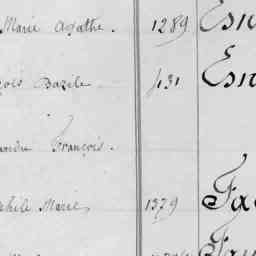 Marie Agathe. 1289 Esn
çois Bazile. 431 Esn
François.
phile Marie, 1379 Fa
Fau